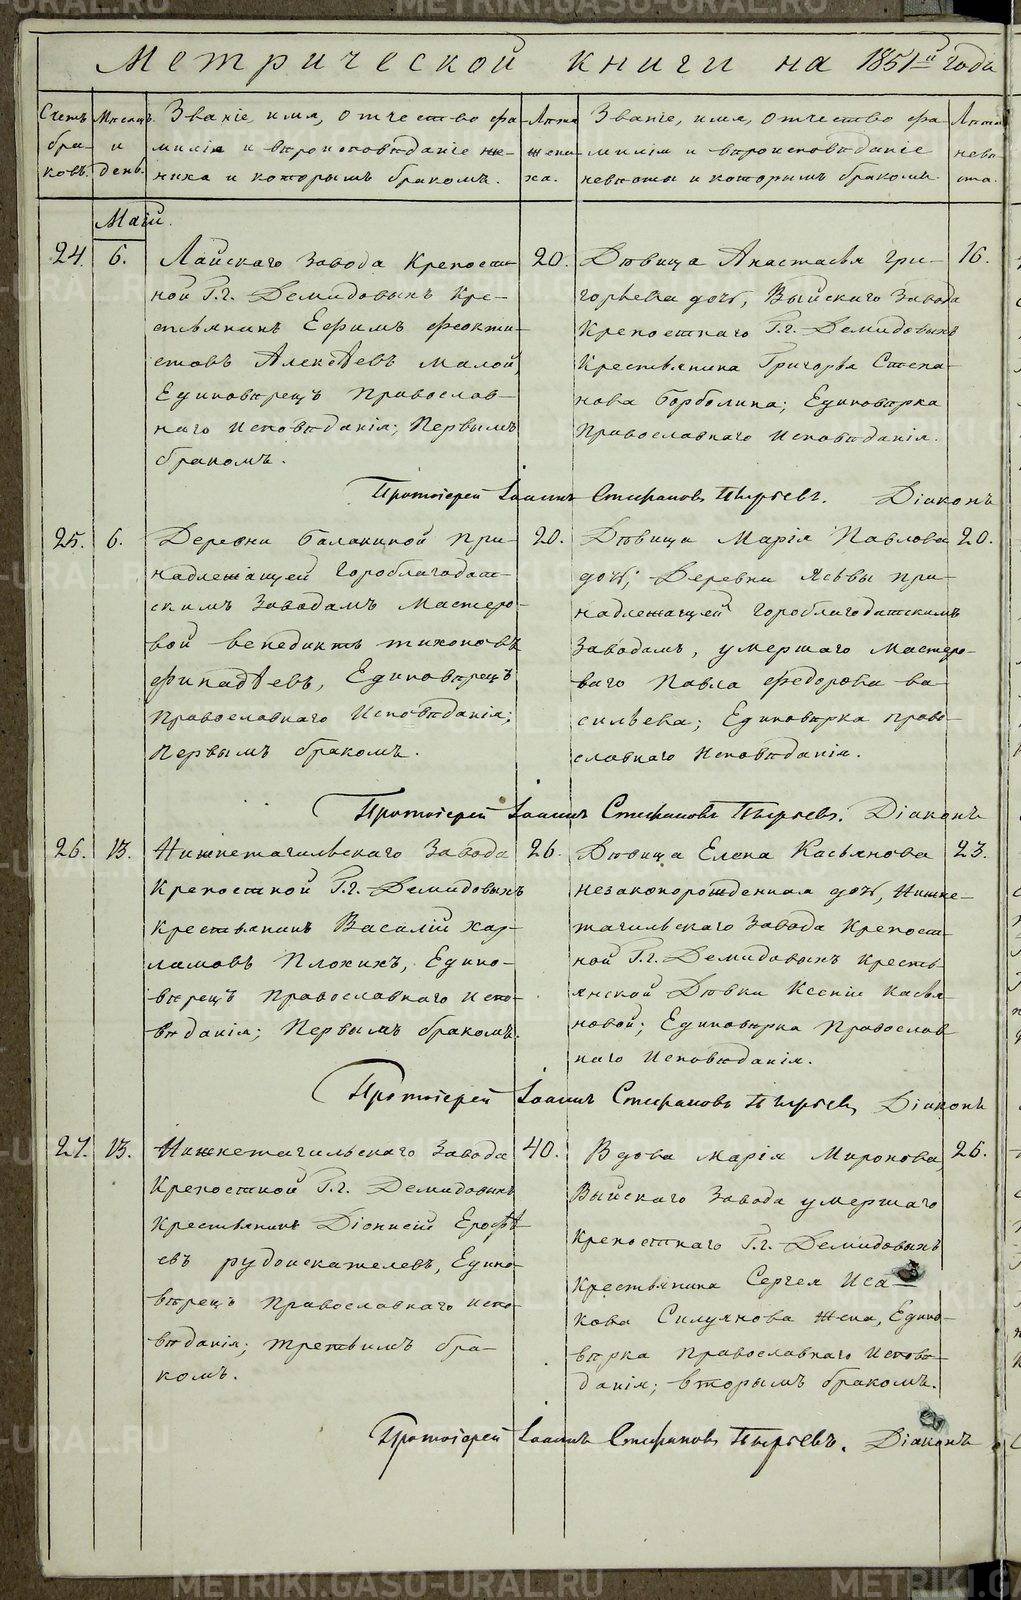 Метрической книги на 1851й годъ
Счетъ браковъ.
Месяцъ и день.
Званіе, имя, отчество фа-
милія и вѣроисповѣданіе же-
ниха и которымъ бракомъ.
Лѣта жени-
ха.
Званіе, имя, отчество фа-
милія и вѣроисповѣданіе
невѣсты и которымъ бракомъ.
Лѣта
невѣ-
ста.
Маій.
24. 6.
Лайскаго завода Крепост-
ной Г.г. Демидовыхъ Кре-
стьянинъ Ефимъ Феокти-
стовъ Алексѣевъ малой,
Единовѣрецъ Православ-
наго Исповѣданія; Первымъ
бракомъ.
20.
Дѣвица Анастасья Гри-
горьева дочь, Выйскаго завода
Крепостнаго Г.г. Демидовыхъ
Крестьянина Григорья Степа-
нова Борболина; Единовѣрка
Православнаго Исповѣданія.
16.
Протоіерей Іоаннъ Стефановъ Пырьевъ. Діаконъ
25. 6.
Деревни Балакиной при-
надлежащей Гороблагодат-
скимъ Заводамъ Мастеро-
вой Венедиктъ Тихоновъ
Финадѣевъ, Единовѣрецъ
Православнаго Исповѣданія;
Первымъ бракомъ.
20.
Дѣвица Марія Павлова
дочь, Деревни Ясьвы при-
надлежащей Гороблагодатскимъ
Заводамъ, умершаго Мастеро-
ваго Павла Федорова Ва-
сильева; Единовѣрка право-
славнаго Исповѣданія.
20.
Протоіерей Іоаннъ Стефановъ Пырьевъ. Діаконъ
26. 13.
Нижнетагильскаго Завода
Крепостной Г.г. Демидовыхъ
Крестьянинъ Василій Хар-
ламовъ Плохихъ, Едино-
вѣрецъ Православнаго Испо-
вѣданія; Первымъ бракомъ.
26.
Дѣвица Елена Касьянова
незаконорожденная дочь, Нижне-
тагильскаго Завода Крепост-
ной Г.г. Демидовыхъ Кресть-
янской Дѣвки Ксеніи Касья-
новой; Единовѣрка Православ-
наго Исповѣданія.
23.
Протоіерей Іоаннъ Стефановъ Пырьевъ Діаконъ
27. 13.
Нижнетагильскаго Завода
Крепостной Г.г. Демидовыхъ
Крестьянинъ Діонисій Ерофѣ-
евъ рудоискателевъ, Едино-
вѣрецъ Православнаго Испо-
вѣданія; третьимъ бра-
комъ.
40.
Вдова Марія Миронова,
Выйскаго Завода умершаго
Крепостнаго Г.г. Демидовыхъ
Крестьянина Сергея Иса-
кова Силуянова жена, Едино-
вѣрка Православнаго Исповѣ-
данія; вторымъ бракомъ.
26.
Протоіерей Іоаннъ Стефановъ Пырьевъ. Діаконъ
METRIKI.GASO-URAL.RU